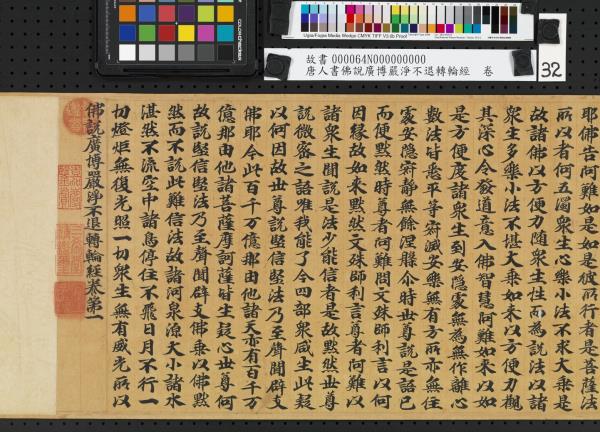 Ugra/Fogra Media Wedge CMYK TIFF V3.0b Proof
故書 000064N000000000
唐人書佛說廣博嚴淨不退轉輪經 卷
32
耶佛告阿難如是如是彼所行者是菩薩法
所以者何五濁衆生心樂小法不求大乗是
故諸佛以方便力隨衆生性而為說法以諸
衆生多樂小法不堪大乗如來以方便力觀
其深心令發道意入佛智慧阿難如來以如
是方便度諸衆生到安隱處無為無作離心
數法皆悉平等寂滅安樂無有方所亦無住
處安隱寂靜無餘涅槃尒時世尊說是語已
而便默然時尊者阿難問文殊師利言以何
因緣故如來默然文殊師利言尊者阿難以
諸衆生聞說是法少能信者是故默然世尊
說微密之語唯我能了今四部衆咸生此疑
以何因故世尊說堅信堅法乃至聲聞辟支
佛耶今此百千万億那由他諸天亦有百千万
億那由他諸菩薩摩訶薩皆生疑心世尊何
故說堅信堅法乃至聲聞辟支佛乗以佛默
然而不說此難信法故諸河泉源大小諸水
湛然不流空中諸鳥停住不飛日月不行一
切燈炬無復光照一切衆生無有威光所以
佛說廣博嚴淨不退轉輪經卷第一